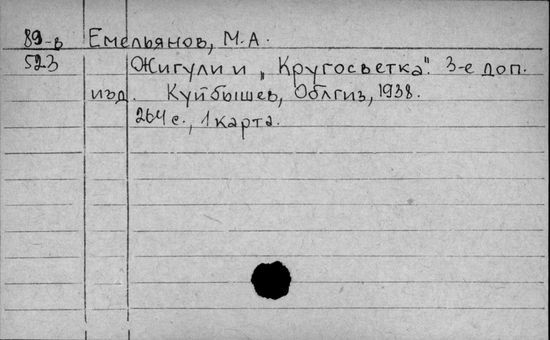 89-в Емельянов, М.А.
523 Жигули и „Кругосветка". 3-е доп.
изд. Куйбышев, Облгиз, 1938.
264 с., 1 карта.